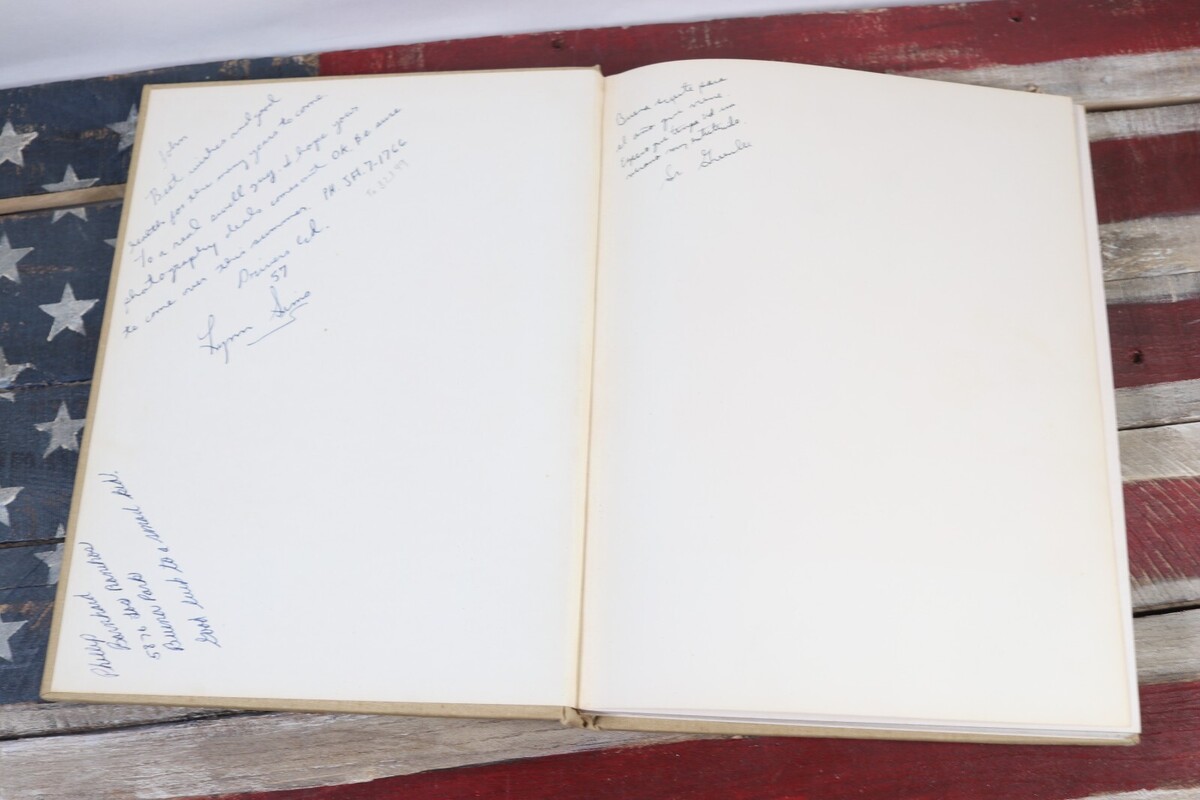 John
Best wishes and good
health for the many years to come
To a real swell guy I hope your
photography deals comes out OK. Be sure
to come over this summer PH JA. 7-1766
Drivers Ed.
57
Lynn Sims
Phillip
Barnhard
5876 Los Ranchos
Buena Park
Good luck to a small kid.
Buena suerte para
el año que viene.
Espero que tenga
Sr.